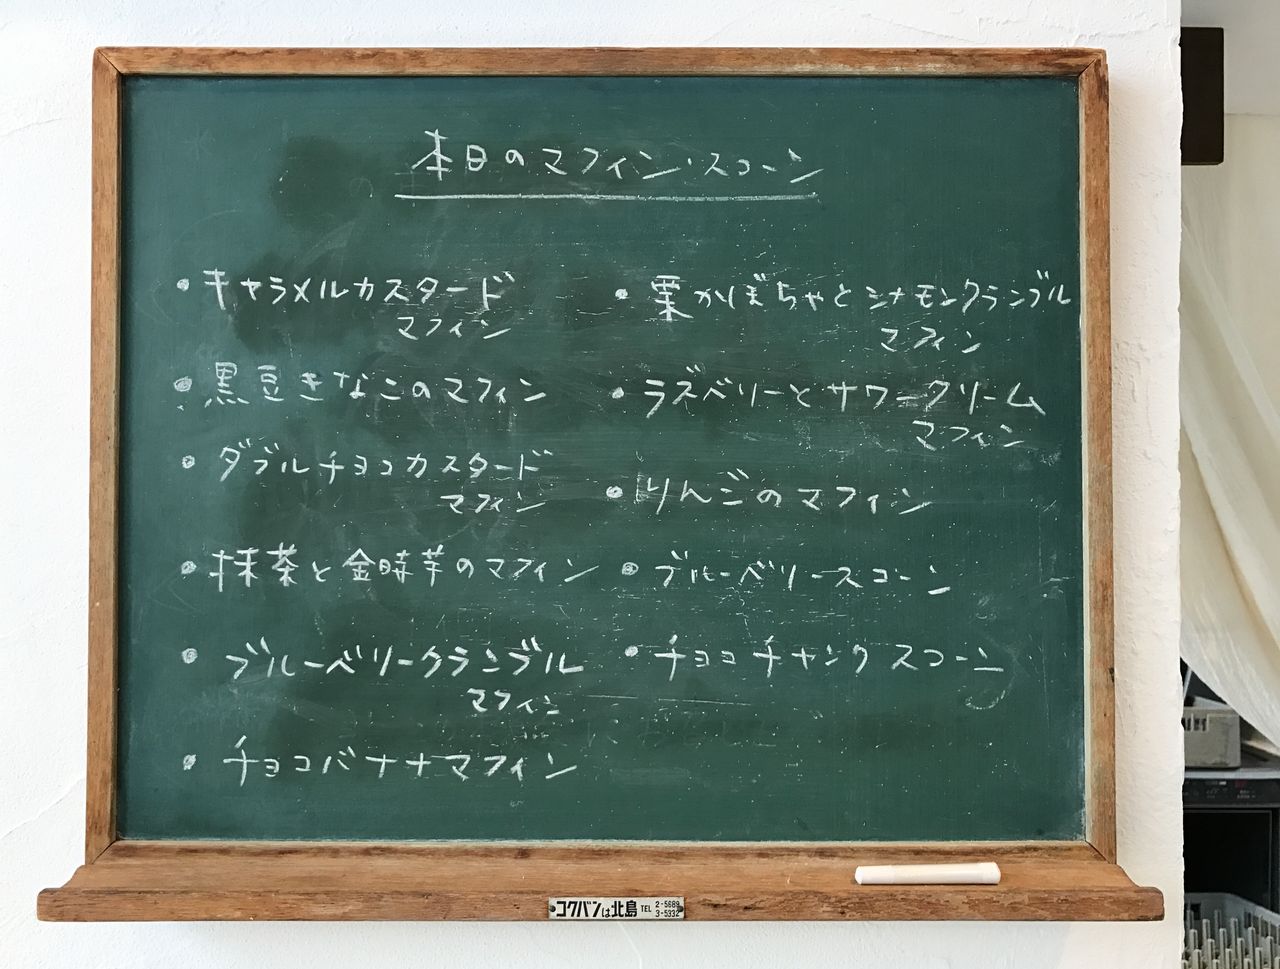 本日のマフィン・スコーン
・キャラメルカスタード
マフィン
・黒豆きなこのマフィン
・ダブルチョコカスタード
マフィン
・抹茶と金時芋のマフィン
・ブルーベリークランブル
マフィン
・チョコバナナマフィン
・栗かぼちゃとシナモンクランブル
マフィン
・ラズベリーとサワークリーム
マフィン
・りんごのマフィン
・ブルーベリースコーン
・チョコチャンクスコーン
コクバンは北島 TEL 2-5689
3-5932